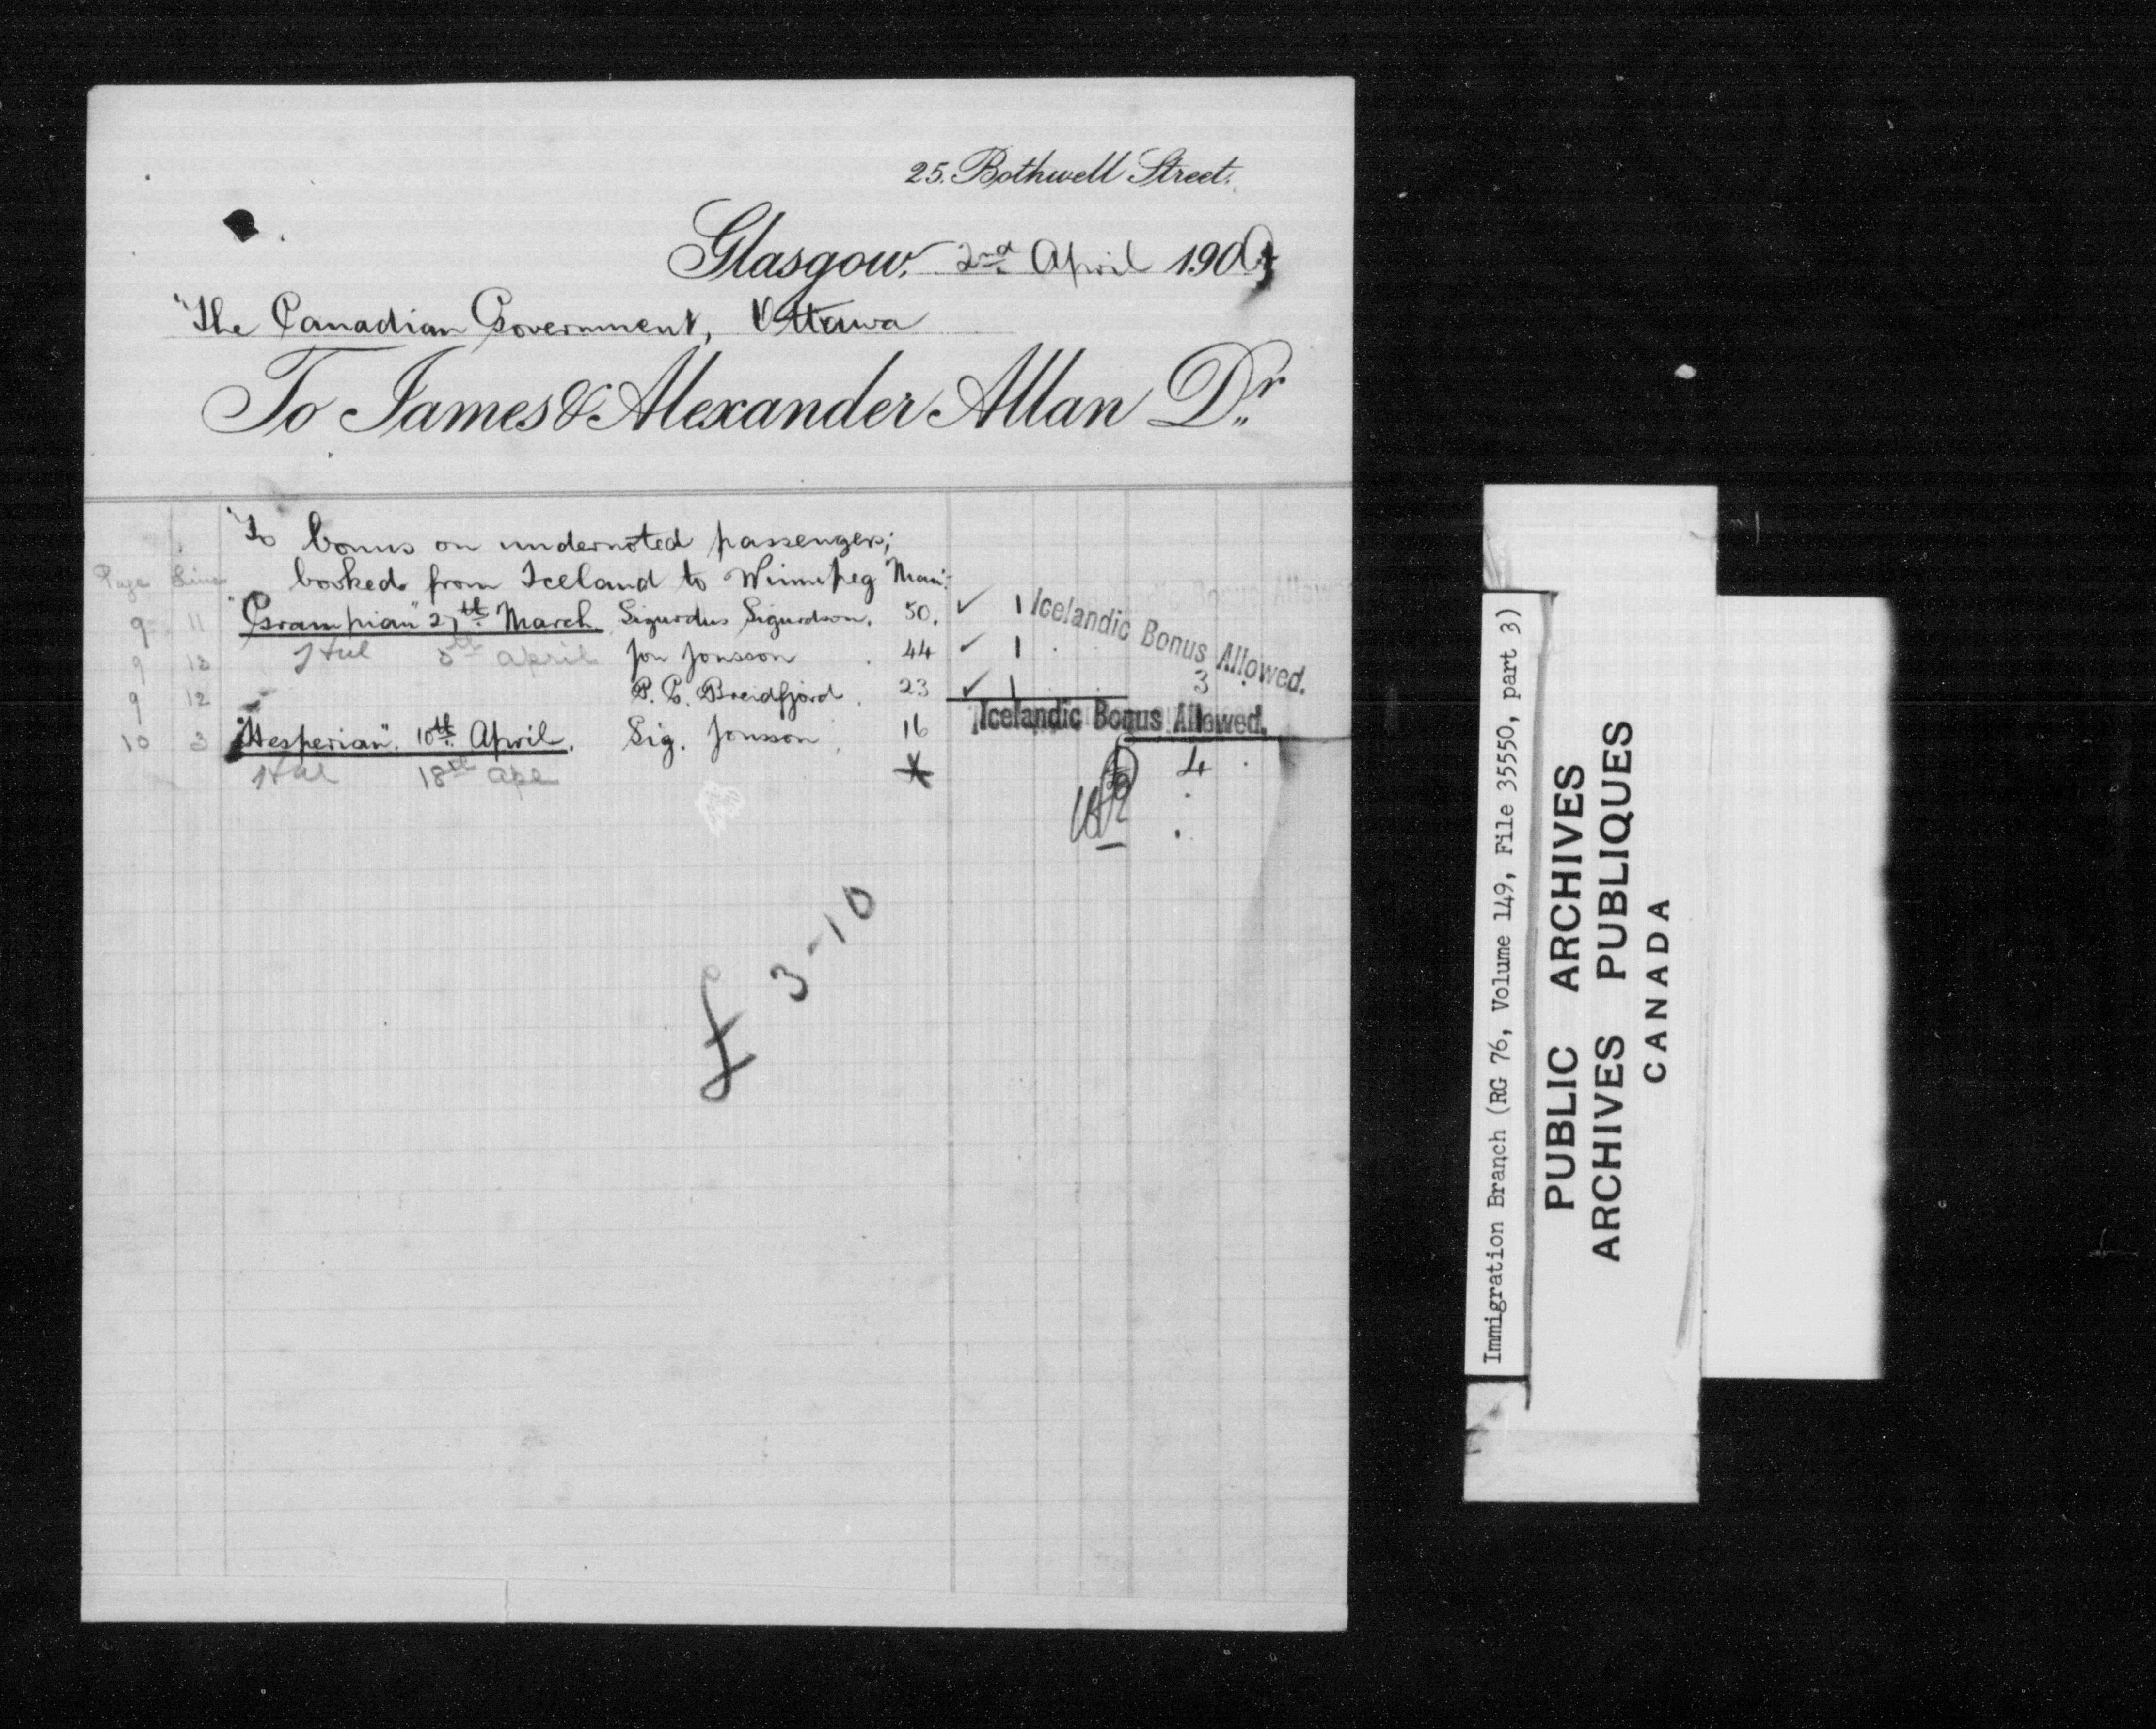 25. Bothwell Street.
Glasgow, 2nd April 1909
The Canadian Government, Ottawa
To James & Alexander Allan Dr.
To bonus on undernoted passengers;
Page Line booked from Iceland to Winnipeg Man:
9 11 "Grampian" 27th March Sigurdus Sigurdson. 50. ✓ 1 Icelandic Bonus Allowed.
9 13 Hal 5th April Jon Jonsson 44 ✓ 1
9 12 P. C. Breidfjord. 23 ✓ 1 3
10 3 "Hesperian". 10th April. Sig. Jonsson 16 Icelandic Bonus Allowed. 1
Hal 18th Apl 4
£ 3-10
Immigration Branch (RG 76, Volume 149, File 35550, part 3)
PUBLIC ARCHIVES
ARCHIVES PUBLIQUES
CANADA